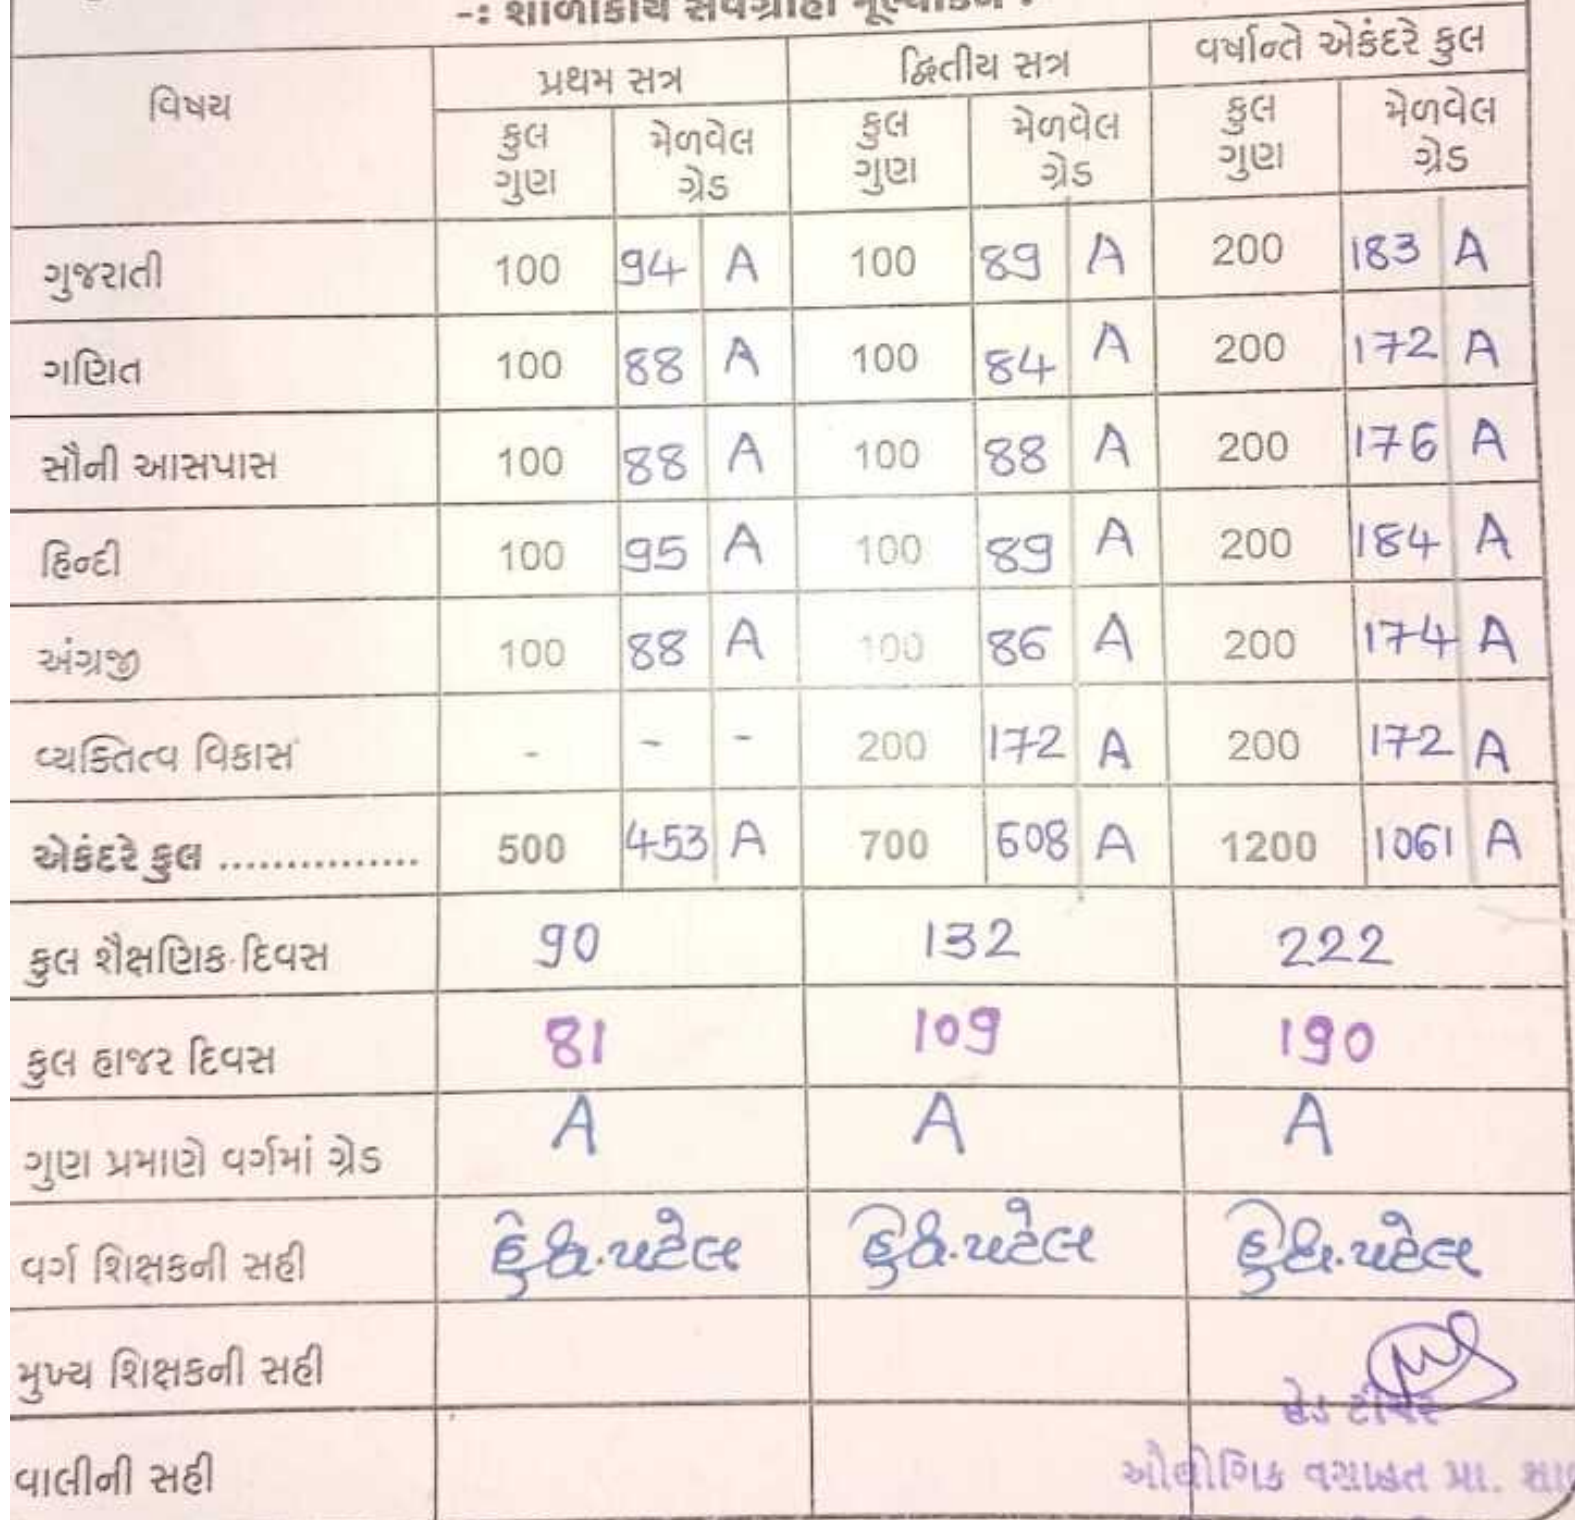 -: શાળાકીય સર્વગ્રાહી મૂલ્યાંકન :
વિષય પ્રથમ સત્ર દ્વિતીય સત્ર વર્ષાન્તે એકંદરે કુલ
કુલ ગુણ મેળવેલ ગ્રેડ કુલ ગુણ મેળવેલ ગ્રેડ કુલ ગુણ મેળવેલ ગ્રેડ
ગુજરાતી 100 94 A 100 89 A 200 183 A
ગણિત 100 88 A 100 84 A 200 172 A
સૌની આસપાસ 100 88 A 100 88 A 200 176 A
હિન્દી 100 95 A 100 89 A 200 184 A
અંગ્રજી 100 88 A 100 86 A 200 174 A
વ્યક્તિત્વ વિકાસ - - - 200 172 A 200 172 A
એકંદરે કુલ ............... 500 453 A 700 608 A 1200 1061 A
કુલ શૈક્ષણિક દિવસ 90 132 222
કુલ હાજર દિવસ 81 109 190
ગુણ પ્રમાણે વર્ગમાં ગ્રેડ A A A
વર્ગ શિક્ષકની સહી પટેલ પટેલ પટેલ
મુખ્ય શિક્ષકની સહી
હેડ ટીચર
વાલીની સહી ઔદ્યોગિક વસાહત પ્રા.